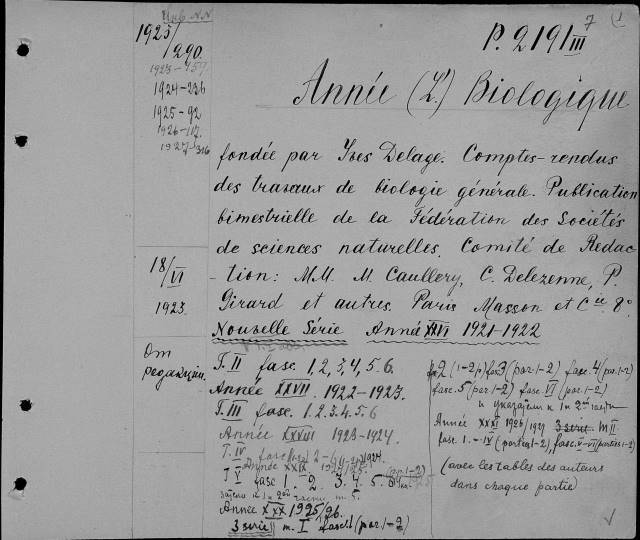 Инв. N.N
1923/290.
1923-157
1924-226
1925-92
1926-117.
1927-316
18/VI
1923.
От
редакции.
7
P. 2191 III
Année (L') Biologique
fondée par Yves Delage. Comptes-rendus
des travaux de biologie générale. Publication
bimestrielle de la Fédération des Sociétés
de sciences naturelles. Comité de Redac-
tion: M.M. M. Caullery, C. Delezenne, P.
Girard et autres. Paris Masson et Cie 8°
Nouvelle Série Année XXVI 1921-1922
T. II fasc. 1, 2, 3, 4, 5. 6.
Année XXVII. 1922-1923.
T. III fasc. 1. 2. 3. 4. 5. 6
Année XXVIII 1923-1924.
T. IV fasc.
Année XXIX.
T V fasc 1. 2. 3. 4. 5. 6
Année XXX 1925/26.
3 serie m. I fasc 1 (par. 1-2)
2 (1-2p) fas 3 (par. 1-2) fasc. 4 (par. 1-2)
fasc. 5 (par 1-2) fasc. VI (par. 1-2)
и указатели к 1 и 2ой части
Année XXXI 1926/1927 3 serie. m II
fasc. 1. - IV (parties 1-2), fasc. V-VI (parties 1-2)
(avec les tables des auteurs
dans chaque partie)